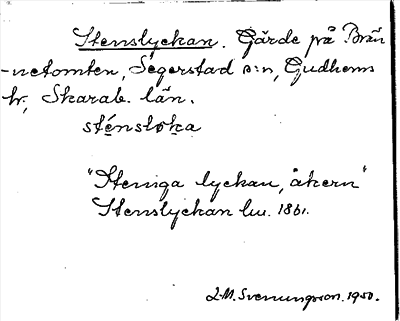 Stenslyckan. Gärde på Brän
-netomten, Segerstad s:n, Gudhems
hr, Skarab. län.
sténsløka
"Steniga lyckan, åkern"
Stenslyckan lm. 1861.
L-M. Svenungsson. 1950.